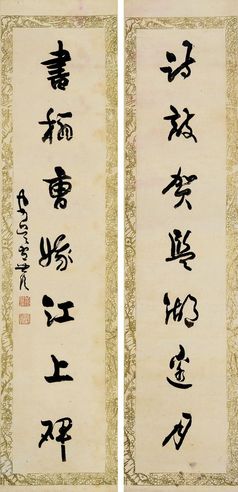 詩敲賀監湖邊月
書稱曹娥江上碑